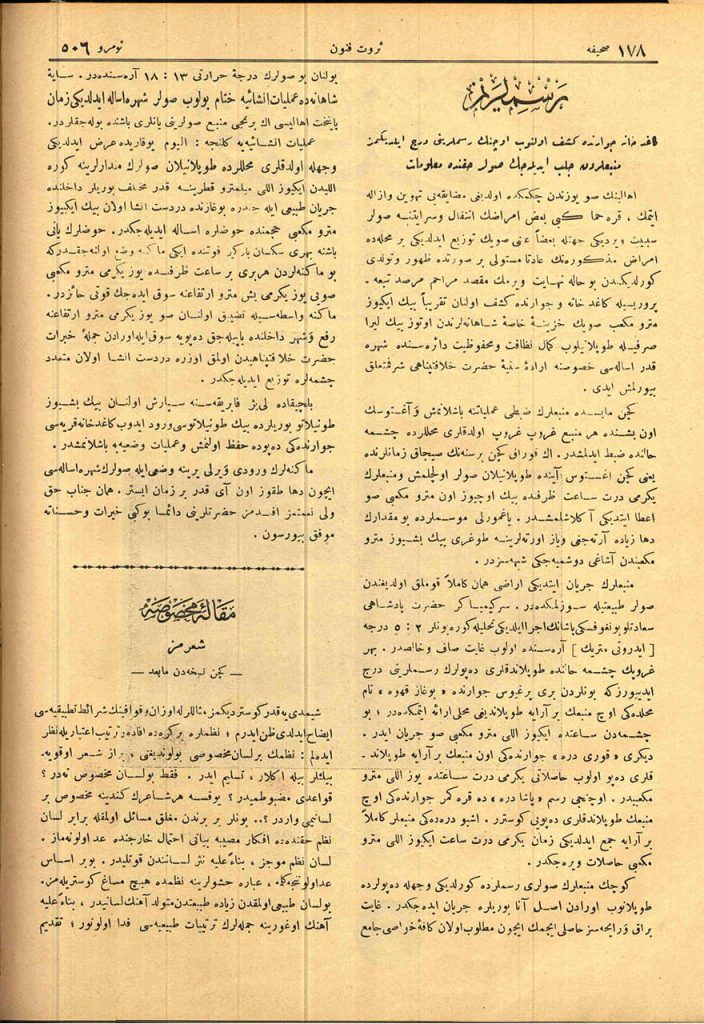 ١٧٨ صحيفه
ثروت فنون
نومرو ٥٠٦
رسملريمز
كاغد خانه جوارنده كشف اولنوب اوچنك رسملرينى درج ايلديكمز
منبعلردن جلب ايديله‌جك صولر حقنده معلومات
اهالينك صو يوزندن چكمكده اولدينى مضايقه‌يى تهوين وازاله
ايتمك ، قره حما كبى بعض امراضك انتقال وسرايتنه صولر
سببيت ويرديكى جهتله بعضاً عنى صويك توزيع ايدلديكى بر محله‌ده
امراض مذكوره‌نك عادتا مستولى بر صورتده ظهور وتولدى
كورلديكندن بو حاله نهايت ويرمك مقصد مراحم مرصد تبعه .
پروريسيله كاغد خانه و جوارنده كشف اولنان تقريباً بيك ايكيوز
مترو مكعب صويك خزينهٔ خاصهٔ شاهانه‌لرندن اوتوز بيك ليرا
صرفيله طوپلانيلوب كمال نظافت ومحفوظيت دائره‌سنده شهره
قدر اساله‌سى خصوصنه ارادهٔ سنيهٔ حضرت خلافتپناهى شرفتعلق
بيورلمش ايدى .
كچن مايسده منبعلرك ضبطى عملياتنه باشلانمش و آغستوسك
اون بشنده هر منبع غروپ غروپ اولدقلرى محللرده چشمه
حالنده ضبط ايدلمشدر . اك قوراق كچن برسنه‌نك صيجاق زمانلرنده
يعنى كچن اغستوس آينده طوپلانيلان صولر اولچلمش ومنبعلرك
يكرمى درت ساعت ظرفنده بيك اوچيوز اون مترو مكعبى صو
اعطا ايتديكى آكلاشلمشدر . ياغمورلى موسملرده بو مقدارك
دها زياده آرته‌جغى وياز اورته‌لرينه طوغرى بيك بشيوز مترو
مكعبندن آشاغى دوشميه‌جكى شبهه‌سزدر .
منبعلرك جريان ايتديكى اراضى همان كاملاً قوملق اولديغندن
صولر طبيعتيله سوزلمكده‌در . سركيمياكر حضرت پادشاهى
سعادتلو بونقوفسكى پاشانك اجرا ايلديكى تحليله كوره ونلر ٢ : ٥ درجه
[ ايدروتى متريك ] آره‌سنده اولوب غايت صاف وخالصدر . بهر
غروپك چشمه حالنده طوپلاندقلرى ده‌پولرك رسملرينى درج
ايديورزكه بونلردن برى پرغيوس جوارنده « بوغاز قهوه » نام
محلده‌كى اوچ منبعك بر آرايه طوپلانديغى محلى ارائه ايتمكده‌در ؛ بو
چشمه‌دن ساعتده ايكيوز اللى مترو مكعبى صو جريان ايدر .
ديكرى « قورى دره » جوارنده‌كى اون منبعك بر آرايه طوپلاند .
قلرى ده‌پو اولوب حاصلاتى يكرمى درت ساعتده يوز اللى مترو
مكعبيدر . اوچنجى رسم « پاشا دره » ده قره كمر جوارنده‌كى اوچ
منبعك طوپلاندقلرى ده‌پويى كوسترر . اشبو دره‌ده‌كى منبعلر كاملاً
بر آرايه جمع ايدلديكى زمان يكرمى درت ساعت ايكيوز اللى مترو
مكعبى حاصلات ويره‌جكدر .
كوچك منبعلرك صولرى رسملرده كورلديكى وجهله ده‌پولرده
طوپلانوب اورادن اصل آنا بورىلره جريان ايده‌جكدر . غايت
براق ورايحه‌سز حاصلى ايچمك ايچون مطلوب اولان كافهٔ خواصى جامع
بولنان بو صولرك درجهٔ حرارتى ١٣ : ١٨ آره‌سنده‌در . سايهٔ
شاهانه‌ده عمليات انشائيه ختام بولوب صولر شهره اساله ايدلديكى زمان
پايتخت اهاليسى اك برنجى منبع صولرينى يانلرى باشنده بوله‌جقلردر .
عمليات انشائيه‌يه كلنجه : اليوم يوقاريده عرض ايدلديكى
وجهله اولدقلرى محللرده طوپلانيلان صولرك مقدارلرينه كوره
اللیدن ايكيوز اللى ميليمترو قطرينه قدر مختلف بورىلر داخلنده
جريان طبيعى ايله جندره بوغازنده دردست انشا اولان بيك ايكيوز
مترو مكعبى حجمنده حوضلره اساله ايديله‌جكدر . حوضلرك يانى
باشنه بهرى سكسان باركير قوتنده ايكى ماكنه وضع اولنه‌جقدركه
بو ماكنه‌لردن هربرى بر ساعت ظرفنده يوز يكرمى مترو مكعبى
صويى يوز يكرمى بش مترو ارتفاعنه سوق ايده‌جك قوتى حائزدر .
ماكنه واسطه‌سيله تضييق اولنان صو يوز يكرمى مترو ارتفاعنه
رفع و شهر داخلنده ياپيله‌جق ده‌پويه سوق ايله اورادن جملهٔ خيرات
حضرت خلافتپناهيدن اولمق اوزره دردست انشا اولان متعدد
چشمه‌لره توزيع ايديله‌جكدر .
بلچيقاده لى‌يژ فابريقه‌سنه سپارش اولنان بيك بشيوز
طونيلاتو بورىلرده بيك طونيلاتوسى ورود ايدوب كاغدخانه قريه‌سى
جوارنده‌كى ده‌پوده حفظ اولنمش و عمليات وضعيه‌يه باشلانمشدر .
ماكنه‌لرك ورودى و يرلى يرينه وضى ايله صولرك شهره اساله‌سى
ايچون دها طقوز اون آى قدر بر زمان ايستر . همان جناب حق
ولى نعمتمز افندمز حضرتلرينى دائما بوكبى خيرات وحسناته
موفق بيورسون .
مقالهٔ مخصوصه
شعرمز
— كچن نسخه‌دن مابعد —
شيمدى‌يه قدر كوستردیكمز مثاللرله اوزان و قوافينك شرائط تطبيقيه‌سى
ايضاح ايدلدى ظن ايدرم ؛ نظملره بركره‌ده افاده وتركيب اعتباريله نظر
ايده‌لم : نظمك بر لسان مخصوصى بولونديغنى ، براز شعر اوقويه‌
بيلنلر بيله اكلار ، تسليم ايدر . فقط بو لسان مخصوص نه‌در ؟
قواعدى مضبوطميدر ؟ يوقسه هر شاعرك كندينه مخصوص بر
لسانمى واردر ؟.. بونلر بر برندن مغلق مسائل اولمقله برابر لسان
نظم حقنده‌ده افكار مصيبه بيانى احتمال خارجنده عد اولونه‌ماز .
لسان نظم موجز ، بناءً عليه نثر لسانندن قوتليدر . بو بر اساس
عد اولونمجه كلمه ، عباره حشولرينه نظمده هيچ مساغ كوستريله‌مز .
بو لسان طبيعى اولمقدن زياده طبيعتدن متولد آهنك لسانيدر ، بناءً عليه
آهنك اوغورينه جمله‌لرك ترتيبات طبيعيه‌سى فدا اولونور ؛ تقديم